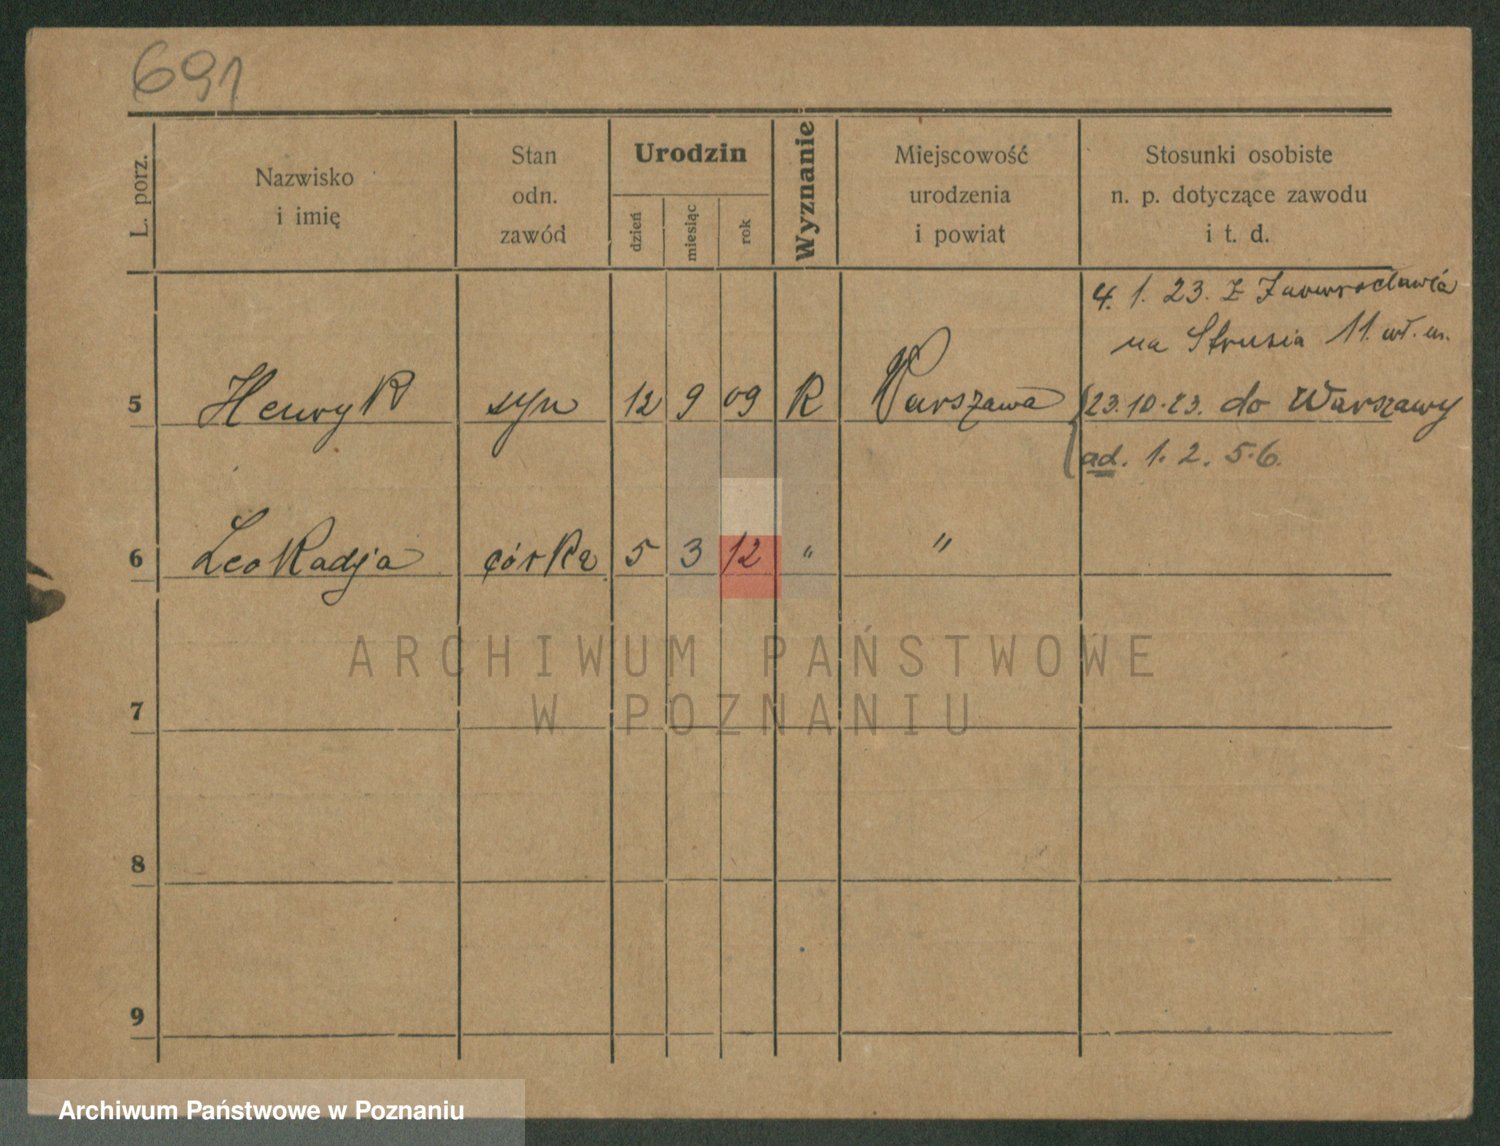 691
L. porz.
Nazwisko
i imię
Stan
odn.
zawód
Urodzin
dzień
miesiąc
rok
Wyznanie
Miejscowość
urodzenia
i powiat
Stosunki osobiste
n. p. dotyczące zawodu
i t. d.
4. 1. 23. z Inowrocławia
na Strusia 11. wł. m.
5 Henryk syn 12 9 09 R Warszawa 23.10.23. do Warszawy
ad. 1. 2. 5. 6.
6 Leokadja córka 5 3 12 " "
ARCHIWUM PAŃSTWOWE
W POZNANIU
7
8
9
Archiwum Państwowe w Poznaniu